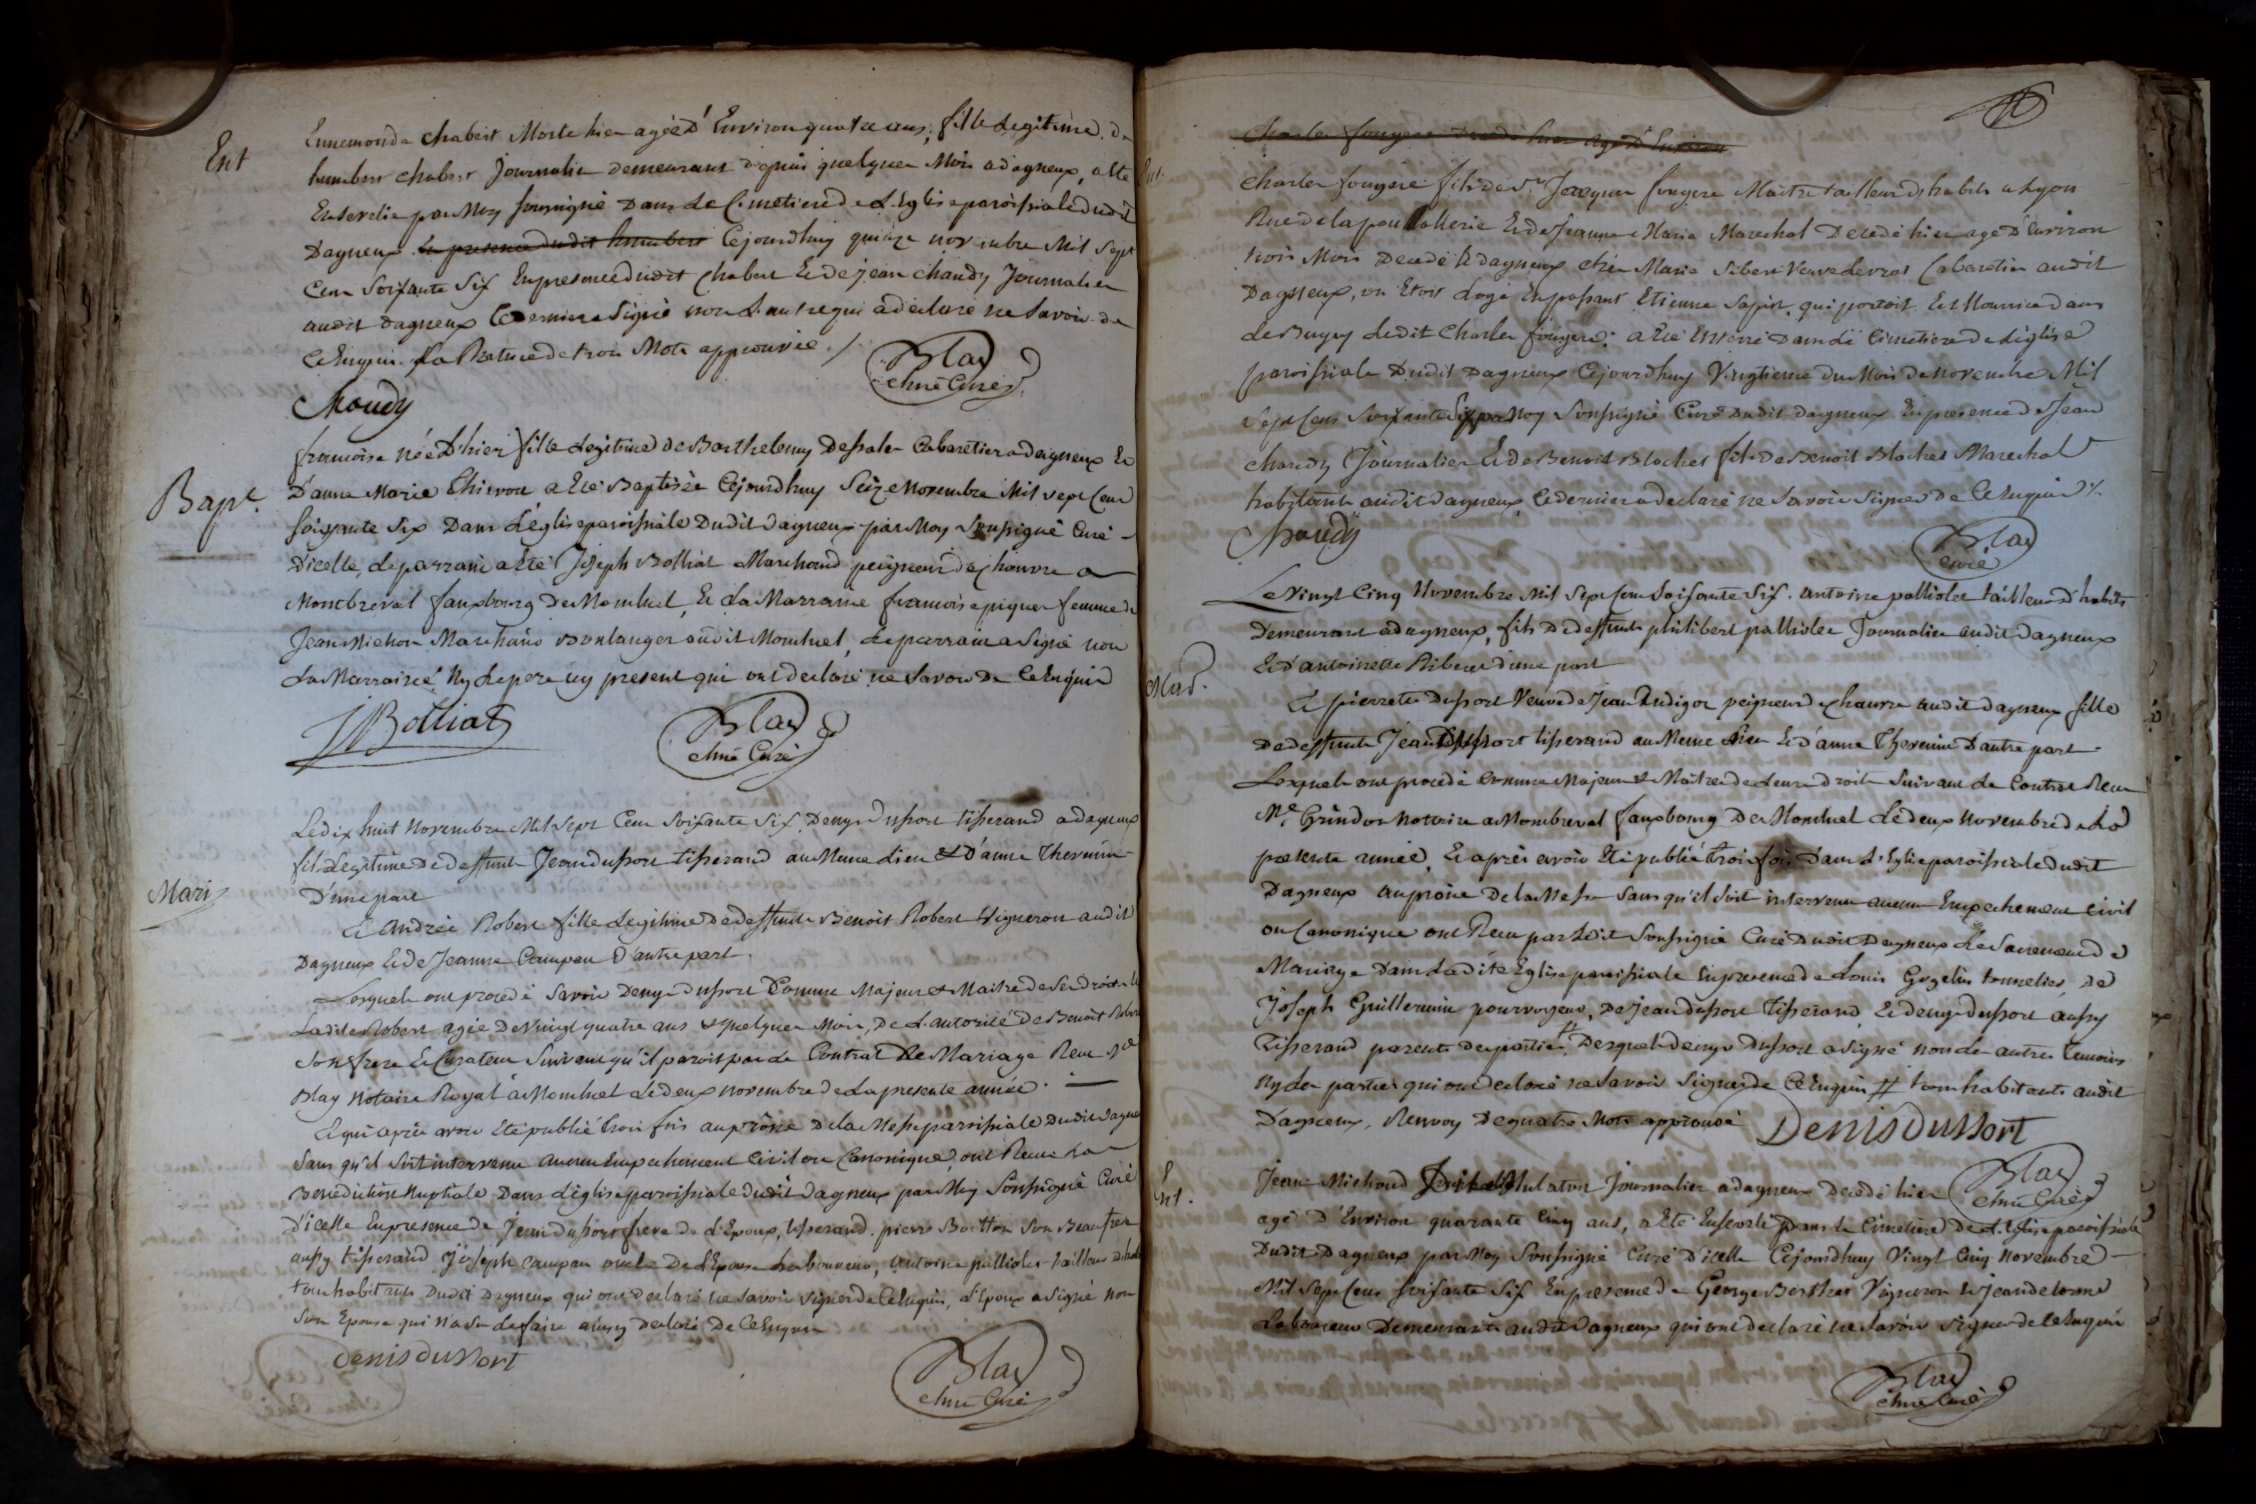 Ent
Ennemonde chabert Morte hier agée d'Environ quatre ans, fille Legitime de
humbert chabert Journalier demeurant depuis quelques Mois a dagneux, a Ete
Ensevelie par Moy soussigné Dans Le Cimetiere de L'Eglise paroissiale dudit
Dagneux En presence dudit humbert Cejourdhuy quinze novembre Mil Sept
Cent Soixante Six En presence dudit Chabert Et de jean chaudy Journalier
audit dagneux Ce dernier a Signé non L'autre qui a declaré ne Savoir de
Ce Enquis. La Rature de trois Mots approuvée ./.
Blay
chne Curé
Chaudy
Bapt.
francoise née d'hier fille Legitime de Barthelemy Dessales Cabaretier a dagneux Et
D'anne Marie Thievon a Eté Baptisée Cejourdhuy Seize Novembre Mil Sept Cent
Soixante Six Dans L'église paroissiale Dudit Dagneux par Moy Soussigné Curé
D'icelle, Le parrain a Eté Joseph Bolliat Marchand peigneur de Chanvre a
Montbreval fauxbourg de Montluel, Et La Marraine francoise piquet femme de
Jean Michon Marchand Boulanger audit Montluel, Le parrain a Signé non
La Marraine Ny Le pere icy present qui ont declaré ne Savoir De Ce Enquis
JBolliat
Blay
chne Curé
Mari
Le dix huit Novembre Mil Sept Cent Soixante Six, Denys Dussort tisserand a dagneux
fils Legitime De deffunt Jean dussort tisserand au Meme Lieu & D'anne Thevenin
D'une part
Et Andrée Robert fille Legitime De deffunt Benoit Robert Vigneron audit
Dagneux Et de Jeanne Campan D'autre part.
Lesquels ont procedé Savoir Denys dussort Comme Majeur & Maitre de Ses droits Et
Ladite Robert agée De Vingt quatre ans & quelques Mois, De L'autorité de Benoit Robert
Son frere Et Curateur Suivant qu'il paroit par Le Contrat De Mariage Recu Me
Blay Notaire Royal a Montluel Le deux novembre de La presente année.
Et qui après avoir Eté publié trois fois au prône De la Messe paroissiale Dudit Dagneux
Sans qu'il Soit intervenu Aucun Empechement Civil ou Canonique, ont Recu La
Benediction Nuptiale Dans L'église paroissiale dudit Dagneux par Moy Soussigné Curé
D'icelle En presence de Jean dussort frere de L'Epoux, tisserand. pierre Boetton Son Beau frere
aussy tisserand Joseph Campan oncle De L'Epouse Laboureur, antoine palliolet tailleur dhabits
tous habitants Dudit Dagneux qui ont declaré ne Savoir Signer de Ce Enquis, L'Epoux a Signé non
Son Epouse qui N'a Su Le faire ainsy declaré De Ce Enquise
denis dussort
Blay
chne Curé
Charles fougere decedé hier agé d'Environ
Ent.
Charles fougere fils de Sr. Jacques fougere Maitre tailleur d'habits a Lyon
Rue de la poullallerie Et de Jeanne Marie Marechal Decedé hier agé D'Environ
trois Mois Decedé A dagneux chez Marie Sibert Veuve Levrat Cabaretier audit
Dagneux, ou Etoit Logé En passant Etienne Sapin qui portoit En Nourrice dans
Le Bugey Ledit Charles fougere: a Eté Enterré Dans Le Cimetiere de L'église
paroissiale Dudit Dagneux Cejourdhuy Vingtieme du Mois de Novembre Mil
Sept Cent Soixante Six par Moy Soussigné Curé Dudit Dagneux En presence de Jean
chaudy Journalier Et de Benoit Blochet fils de Benoit Blochet Marechal
habitants audit dagneux, Ce dernier a declaré ne Savoir Signer de Ce Enquis ./.
Chaudy
Blay
Curé
Mar.
Le Vingt Cinq Novembre Mil Sept Cent Soixante Six. antoine palliolet tailleur D'habits
Demeurant a dagneux, fils De deffunt philibert palliolet Journalier audit Dagneux
Et d'antoinette Riberet d'une part
Et pierrette Dussort Veuve de Jean Rudigoz peigneur de Chanvre audit dagneux fille
De deffunt Jean Dussort tisserand au Meme Lieu Et d'anne Thevenin D'autre part.
Lesquels ont procedé Comme Majeurs & Maitres de Leurs droits Suivant Le Contrat Recu
Me. Grindon Notaire a Montbreval fauxbourg De Montluel Le deux Novembre de La
presente année, Et après avoir Eté publié trois fois Dans L'Eglise paroissiale dudit
Dagneux au prône De la Messe Sans qu'il Soit intervenu aucun Empechement Civil
ou Canonique ont Recu par Ledit Soussigné Curé Dudit Dagneux Le Sacrement de
Mariage Dans Ladite Eglise paroissiale En presence de Louis Gogelin tonnelier, De
Joseph Guillermin pourvoyeur, De Jean dussort Tisserand, Et denys dussort aussy
Tisserand parents des parties # Desquels denys Dussort a Signé non Les autres temoins
Ny Les parties qui ont declaré ne Savoir Signer de Ce Enquis # tous habitants audit
Dagneux, Renvoy De quatre Mots approuvé
Denis dussort
Blay
chne Curé
Ent.
Jean Michoud Mulaton Journalier a dagneux Decedé hier
agé D'Environ quarante Cinq ans, a Eté Enseveli Dans Le Cimetiere De L'Eglise paroissiale
Dudit Dagneux par Moy Soussigné Curé D'icelle Cejourdhuy Vingt Cinq Novembre
Mil Sept Cent Soixante Six En presence de George Berthet Vigneron Et Jean delorme
Laboureur Demeurants audit Dagneux qui ont declaré ne Savoir Signer de Ce Enquis
Blay
chne Curé